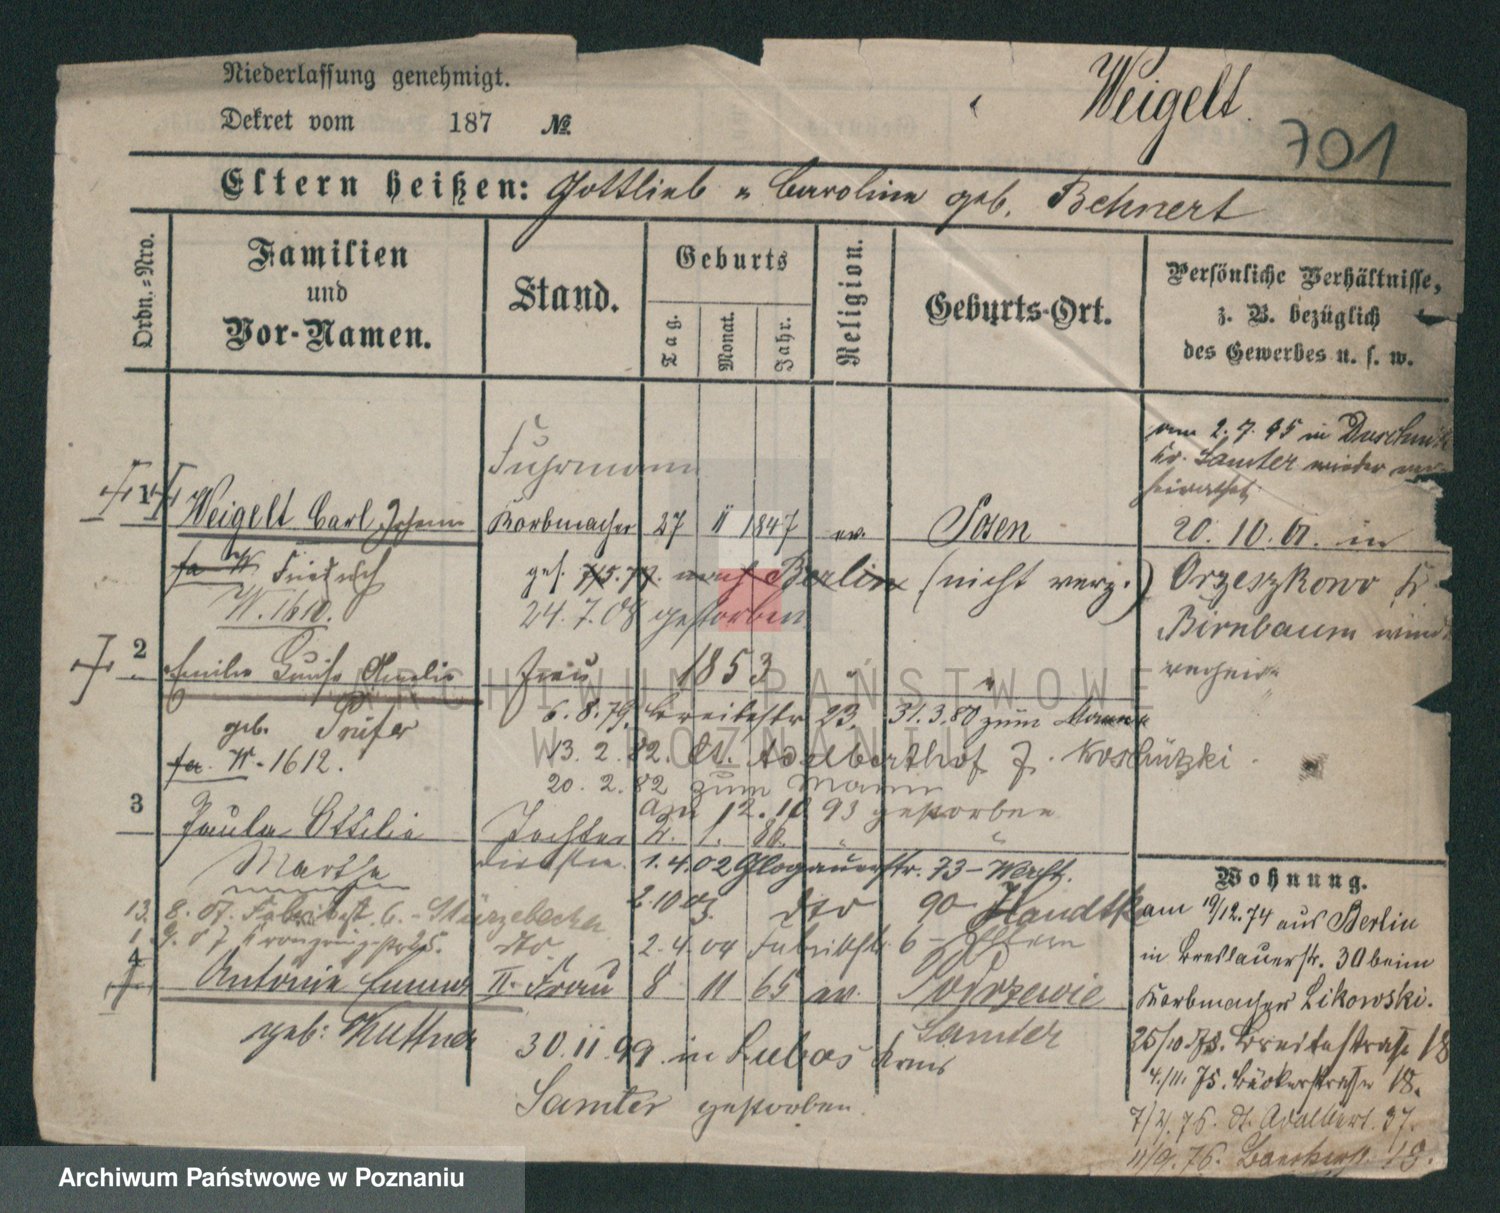 Niederlassung genehmigt.
Weigelt.
Dekret vom 187 №
701
Eltern heißen: Gottlieb u Caroline geb. Behnert
Ordn.-Nro.
Familien
und
Vor-Namen.
Stand.
Geburts
Tag.
Monat.
Jahr.
Religion.
Geburts-Ort.
Persönliche Verhältnisse,
z. B. bezüglich
des Gewerbes u. s. w.
am 2.7.95 in
Kr. Samter wieder ver
heirathet
Fuhrmann
1 Weigelt Carl Johann Korbmacher 27 11 1847 ev. Posen
20.10.01. in
fa W Friedrich
gef. nach Berlin (nicht verz.)
Orzeszkowo K
W. 1610.
24.7.08 gestorben
Birnbaum
2 Emilie Luise Amalie Frau 1853 " "
geb. Prüfer
6.8.79. Breitestr 23. 31.3.80 zum Manne
fa. W-1612.
13.2.82. St. Adalberthof
20.2.82 zum Mann
am 12.10.93 gestorben
3 Paula Ottilie Tochter 2. 1. 80. " "
Martha
1.4.02 Glogauerstr. 73-
2.10.03. dto 90
13.8.07. Fabrikst. 6-
1.9.07
dto. 2.4.04 Fabrikstr 6- Eltern
4 Antonie Emma II. Frau 8 11 65 ev. Podrzewie
geb: Kuttner
Samter
30.11.99. in Lubos Kreis
Samter gestorben.
Wohnung.
am 19/12.74 aus Berlin
in Breslauerstr. 30 beim
Korbmacher Likowski.
25/10 Breitestraße 18
4./11.75. Bäckerstraße 18.
7/2.76. St. Adalbert. 37.
11/9.76. 19.
ARCHIWUM PAŃSTWOWE
W POZNANIU
Archiwum Państwowe w Poznaniu